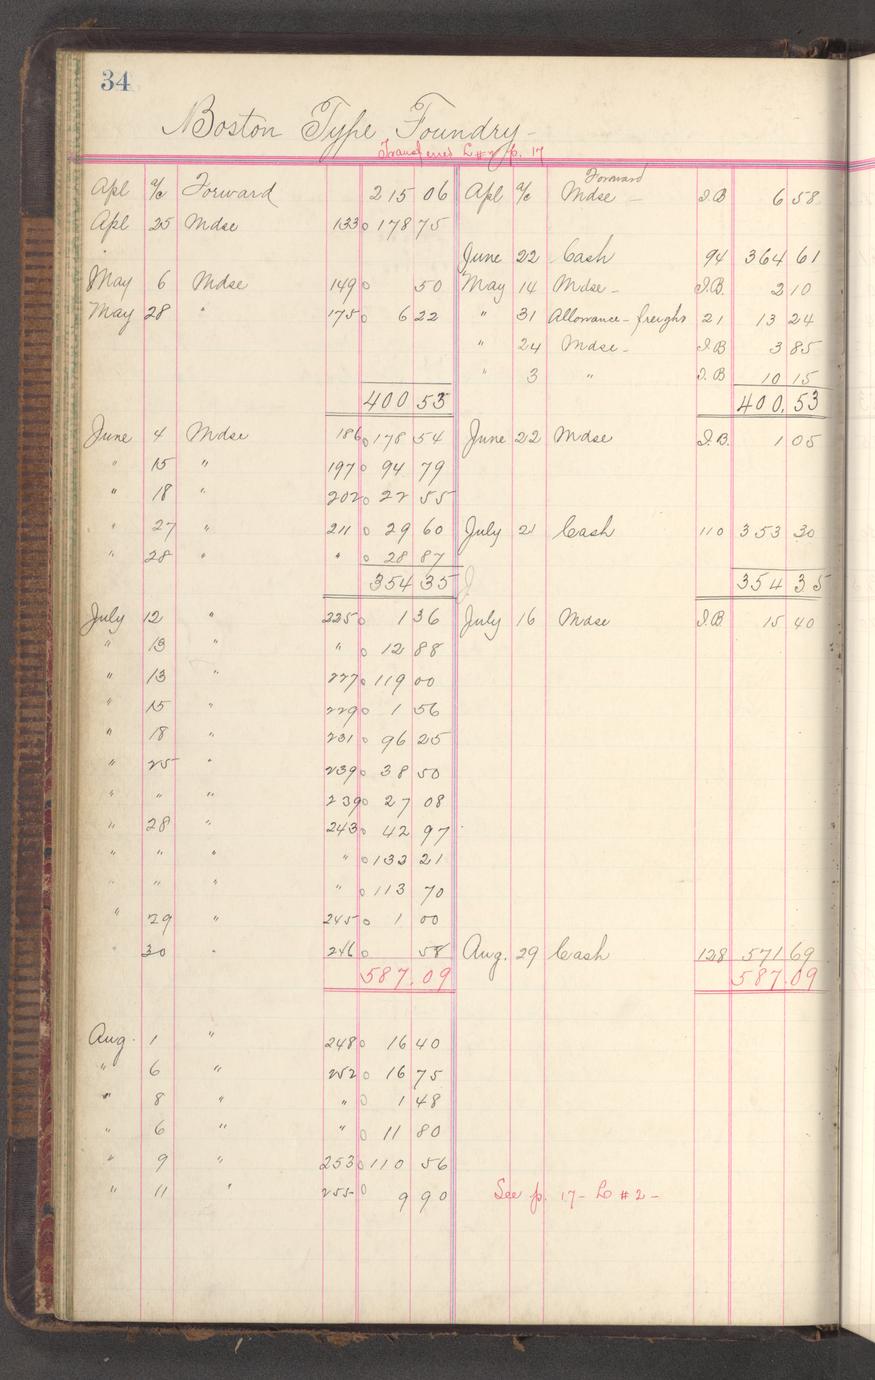 34
Boston Type Foundry-
Transferred L#2 p. 17
Apl a/c Forward 215 06 Apl a/c Forward Mdse - I.B 6 58
Apl 25 Mdse 133 178 75
June 22 Cash 94 364 61
May 6 Mdse 149 50 May 14 Mdse - I.B. 2 10
May 28 " 175 6 22 " 31 Allowance - freight 21 13 24
" 24 Mdse - I.B 3 85
" 3 " I.B 10 15
400 53 400.53
June 4 Mdse 186 178 54 June 22 Mdse I.B. 1 05
" 15 " 197 94 79
" 18 " 202 22 55
" 27 " 211 29 60 July 21 Cash 110 353 30
" 28 " " 28 87
354 35 354 35
July 12 " 225 1 36 July 16 Mdse I.B. 15 40
" 13 " " 12 88
" 13 " 227 119 00
" 15 " 229 1 56
" 18 " 231 96 25
" 25 " 239 38 50
" " " 239 27 08
" 28 " 243 42 97
" " " " 132 21
" " " " 113 70
" 29 " 245 1 00
" 30 " 246 58 Aug. 29 Cash 128 571 69
587.09 587.09
Aug. 1 " 248 16 40
" 6 " 252 16 75
" 8 " " 1 48
" 6 " " 11 80
" 9 " 253 110 56
" 11 " 255 9 90 See p. 17 - L #2 -